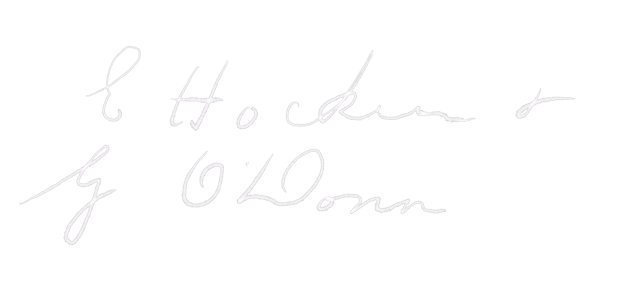 E Hocken &
G O'Donn